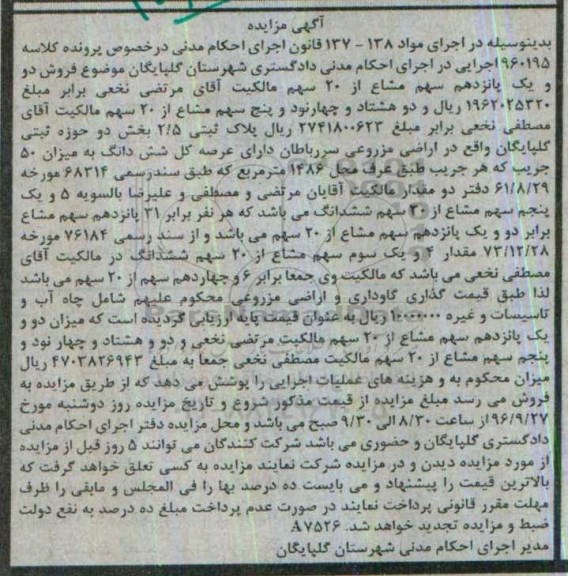 آگهی مزایده
بدینوسیله در اجرای مواد ۱۳۸ - ۱۳۷ قانون اجرای احکام مدنی درخصوص پرونده کلاسه
۹۶۰۱۹۵ اجرایی در اجرای احکام مدنی دادگستری شهرستان گلپایگان موضوع فروش دو
و یک پانزدهم سهم مشاع از ۲۰ سهم مالکیت آقای مرتضی نخعی برابر مبلغ
۱۹۶۲۰۲۵۳۲۰ ریال و دو هشتاد و چهارنود و پنج سهم مشاع از ۲۰ سهم مالکیت آقای
مصطفی نخعی برابر مبلغ ۲۷۴۱۸۰۰۶۲۳ ریال پلاک ثبتی ۲/۵ بخش دو حوزه ثبتی
گلپایگان واقع در اراضی مزروعی سررباطان دارای عرصه کل شش دانگ به میزان ۵۰
جریب که هر جریب طبق عرف محل ۱۴۸۶ مترمربع که طبق سندرسمی ۶۸۳۱۴ مورخه
۶۱/۸/۲۹ دفتر دو مقدار مالکیت آقایان مرتضی و مصطفی و علیرضا بالسویه ۵ و یک
پنجم سهم مشاع از ۲۰ سهم ششدانگ می باشد که هر نفر برابر ۳۱ پانزدهم سهم مشاع
برابر دو و یک پانزدهم سهم مشاع از ۲۰ سهم می باشد و از سند رسمی ۷۶۱۸۴ مورخه
۷۳/۱۲/۲۸ مقدار ۴ و یک سوم سهم مشاع از ۲۰ سهم ششدانگ در مالکیت آقای
مصطفی نخعی می باشد که مالکیت وی جمعا برابر ۶ و چهاردهم سهم از ۲۰ سهم می باشد
لذا طبق قیمت گذاری گاوداری و اراضی مزروعی محکوم علیهم شامل چاه آب و
تاسیسات و غیره ریال به عنوان قیمت پایه ارزیابی گردیده است که میزان دو و
یک پانزدهم سهم مشاع از ۲۰ سهم مالکیت مرتضی نخعی و دو و هشتاد و چهار نود و
پنجم سهم مشاع از ۲۰ سهم مالکیت مصطفی نخعی جمعا به مبلغ ۴۷۰۳۸۲۶۹۴۳ ریال
میزان محکوم به و هزینه های عملیات اجرایی را پوشش می دهد که از طریق مزایده به
فروش می رسد مبلغ مزایده از قیمت مذکور شروع و تاریخ مزایده روز دوشنبه مورخ
۹۶/۹/۲۷ از ساعت ۸/۳۰ الی ۹/۳۰ صبح می باشد و محل مزایده دفتر اجرای احکام مدنی
دادگستری گلپایگان و حضوری می باشد شرکت کنندگان می توانند ۵ روز قبل از مزایده
از مورد مزایده دیدن و در مزایده شرکت نمایند مزایده به کسی تعلق خواهد گرفت که
بالاترین قیمت را پیشنهاد و می بایست ده درصد بها را فی المجلس و مابقی را ظرف
مهلت مقرر قانونی پرداخت نمایند در صورت عدم پرداخت مبلغ ده درصد به نفع دولت
ضبط و مزایده تجدید خواهد شد. A۷۵۲۶
مدیر اجرای احکام مدنی شهرستان گلپایگان